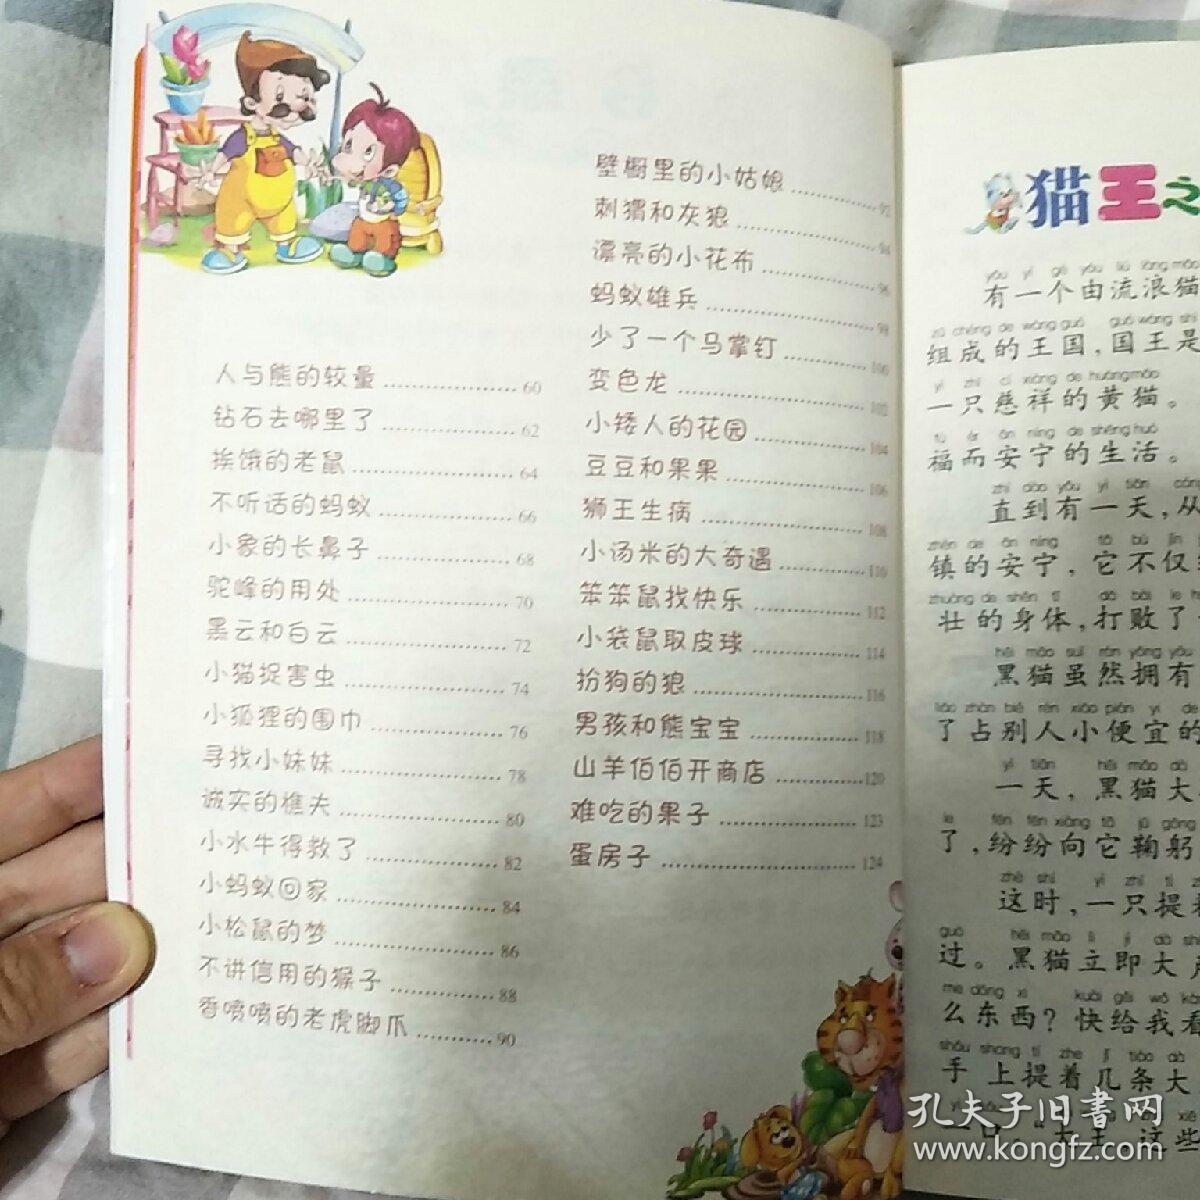 人与熊的较量 60
钻石去哪里了 62
挨饿的老鼠 64
不听话的蚂蚁 66
小象的长鼻子 68
驼峰的用处 70
黑云和白云 72
小猫捉害虫 74
小狐狸的围巾 76
寻找小妹妹 78
诚实的樵夫 80
小水牛得救了 82
小蚂蚁回家 84
小松鼠的梦 86
不讲信用的猴子 88
香喷喷的老虎脚爪 90
壁橱里的小姑娘 92
刺猬和灰狼 94
漂亮的小花布 96
蚂蚁雄兵 98
少了一个马掌钉 100
变色龙 102
小矮人的花园 104
豆豆和果果 106
狮王生病 108
小汤米的大奇遇 110
笨笨鼠找快乐 112
小袋鼠取皮球 114
扮狗的狼 116
男孩和熊宝宝 118
山羊伯伯开商店 120
难吃的果子 123
蛋房子 124
猫王之
yǒu yí gè yóu liú làng māo
有一个由流浪猫
zǔ chéng de wáng guó guó wáng shì
组成的王国，国王是
yì zhī cí xiáng de huáng māo
一只慈祥的黄猫。
fú ér ān níng de shēng huó
福而安宁的生活。
zhí dào yǒu yì tiān cóng
直到有一天，从
zhèn de ān níng tā bù jǐn
镇的安宁，它不仅
zhuàng de shēn tǐ dǎ bài le
壮的身体，打败了
hēi māo suī rán yōng yǒu
黑猫虽然拥有
liǎo zhàn bié rén xiǎo pián yi de
了占别人小便宜的
yì tiān hēi māo dà
一天，黑猫大
le fēn fēn xiàng tā jū gōng
了，纷纷向它鞠躬
zhè shí yì zhī tí
这时，一只提着
guò hēi māo lì jí dà shēng
过。黑猫立即大声
me dōng xi kuài gěi wǒ kàn
么东西？快给我看
shǒu shang tí zhe jǐ tiáo dà
手上提着几条大
大王，这些
孔夫子旧书网
www.kongfz.com